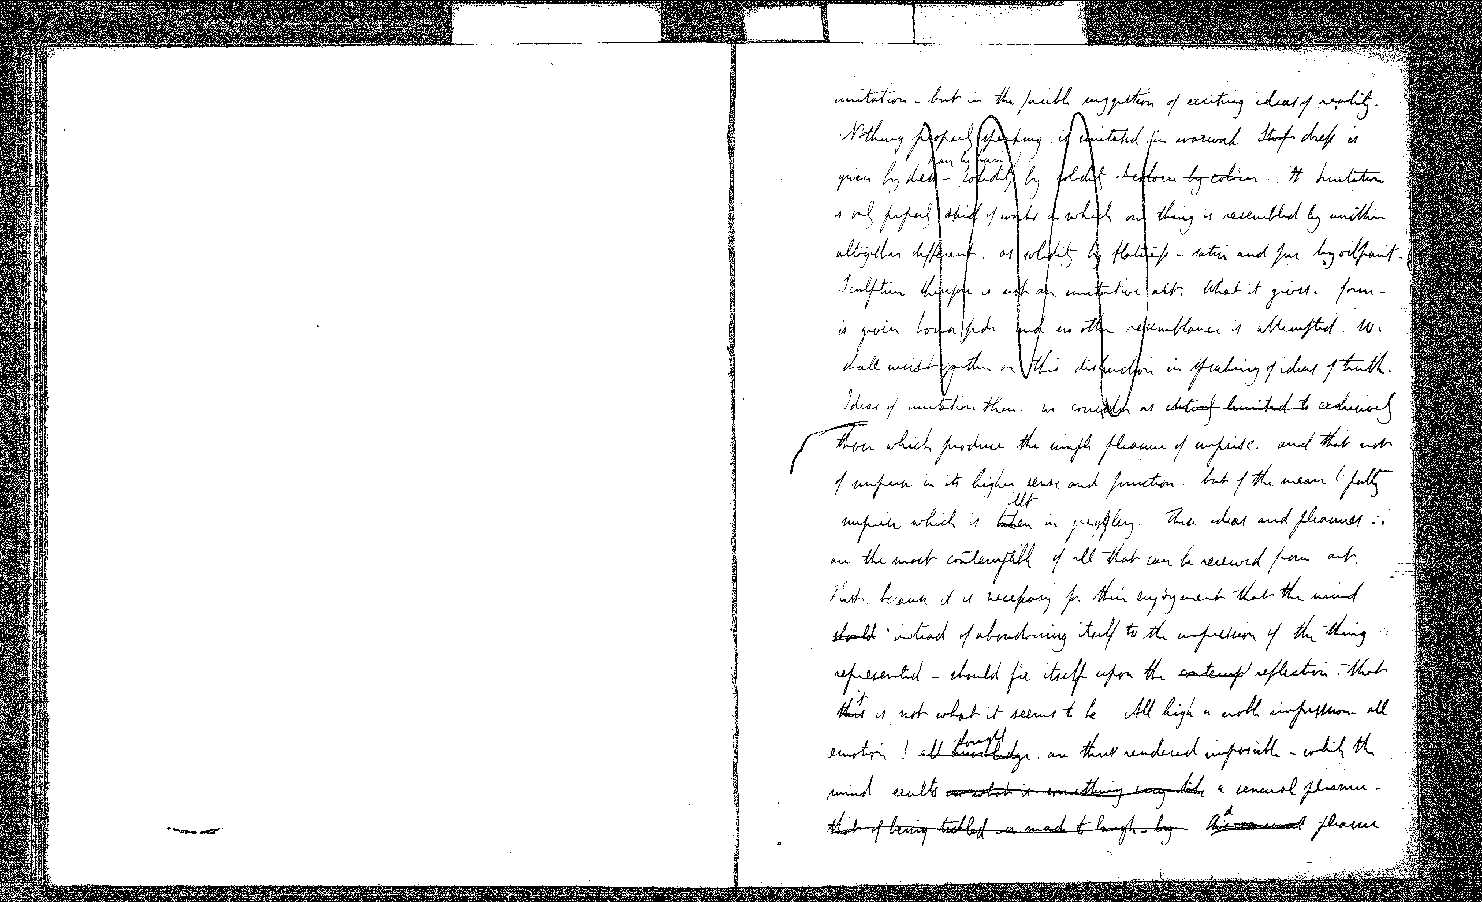 imitation - but in the forcible suggestion of exciting ideas of reality.
Nothing properly speaking is imitated in waxwork Stuff dress is
given by dress - solidity by solidity by colour. It Imitation
is only properly of works in which one thing is resembled by another
altogether different. as solidity by flatness - satin and fur by oilpaint -
Sculpture therefore is not an imitative art. What it gives. form -
is given and no other resemblance is attempted. We
shall insist on this distinction in speaking of ideas of truth.
Ideas of imitation then. we consider as limited to exclusively
those which produce the simple pleasure of surprise. and that not
of surprise in its higher sense and function. but of the mean & paltry
felt
surprise which is taken in jugglery. These ideas and pleasures
are the most contemptible of all that can be received from art.
First. because it is necessary for their enjoyment that the mind
should instead of abandoning itself to the impression of the thing
represented - should fix itself upon the contemp reflection. that
it
this is not what it seems to be All high or noble impression all
thought
emotion & all knowledge. are thus rendered impossible - while the
mind exults as what is something very like a sensual pleasure -
that of being tickled or made to laugh - by pleasure